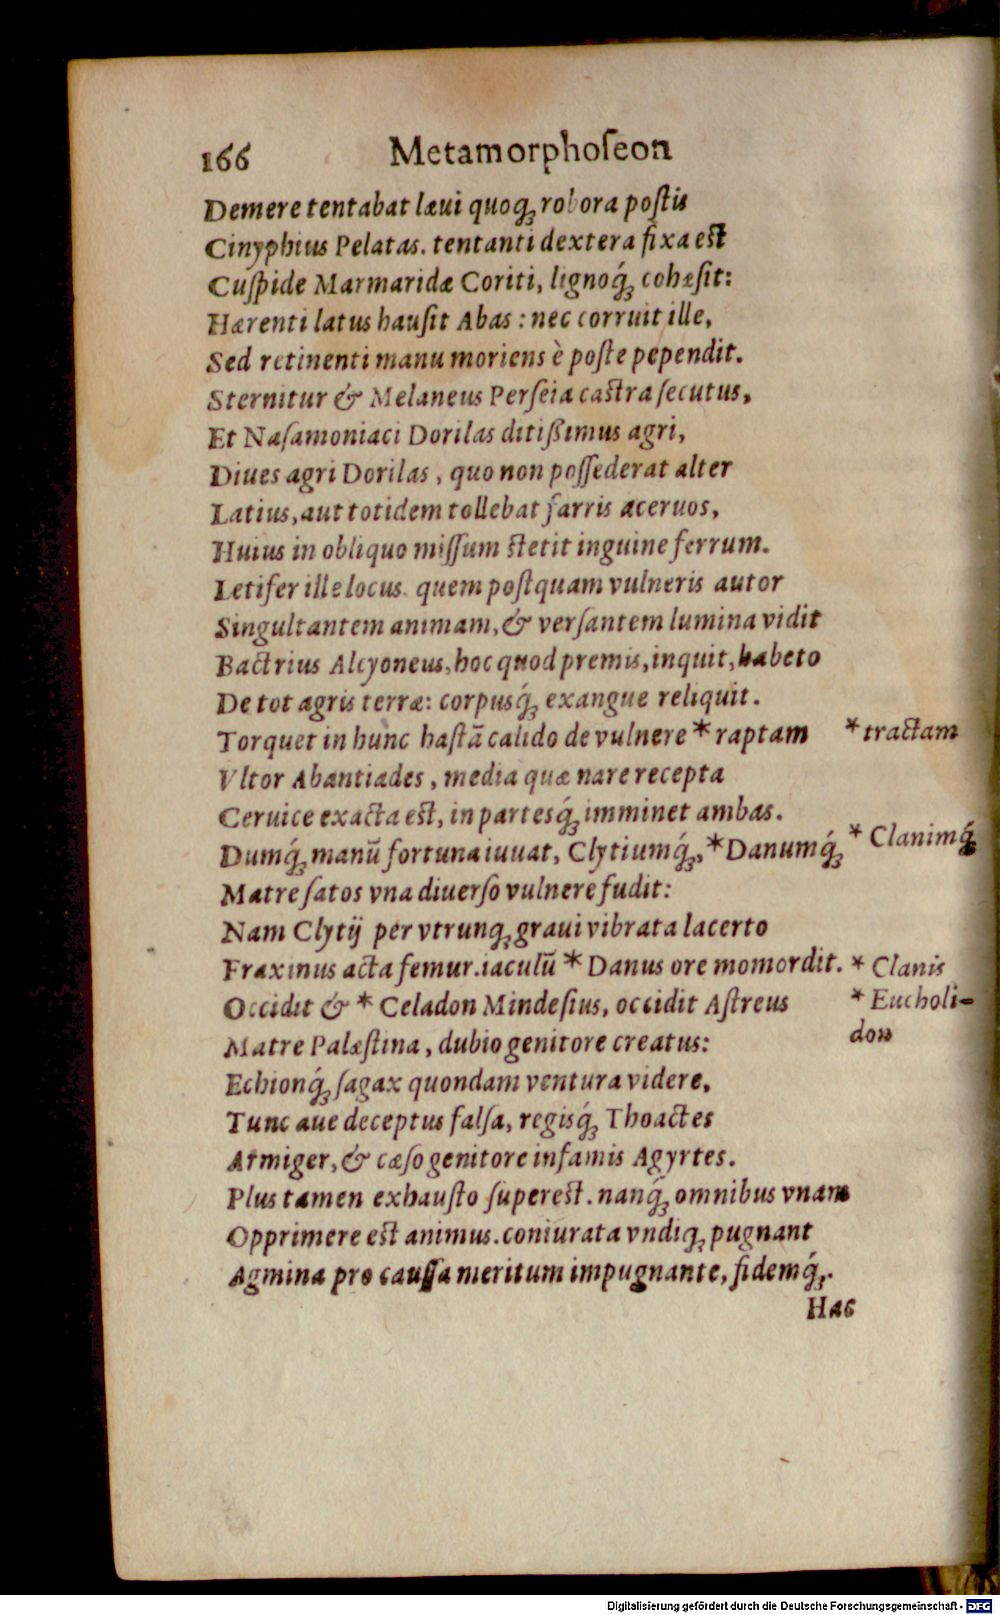 166 Metamorphoſeon
Demere tentabat læui quoq; robora poſtis
Cinyphius Pelatas. tentanti dextera fixa eſt
Cuſpide Marmaridæ Coriti, lignoq́; cohæſit:
Hærenti latus hauſit Abas : nec corruit ille,
Sed retinenti manu moriens è poſte pependit.
Sternitur & Melaneus Perſeia caſtra ſecutus,
Et Naſamoniaci Dorilas ditißimus agri,
Diues agri Dorilas , quo non poſſederat alter
Latius, aut totidem tollebat farris aceruos,
Huius in obliquo miſſum ſtetit inguine ferrum.
Letifer ille locus. quem poſtquam vulneris autor
Singultantem animam, & verſantem lumina vidit
Bactrius Alcyoneus, hoc quod premis, inquit, habeto
De tot agris terræ: corpusq́; exangue reliquit.
Torquet in hunc haſtã calido de vulnere * raptam * tractam
Vltor Abantiades , media quæ nare recepta
Ceruice exacta eſt, in partesq́; imminet ambas.
Dumq́; manũ fortuna iuuat, Clytiumq́;, * Danumq́; * Clanimq́;
Matre ſatos vna diuerſo vulnere fudit:
Nam Clytij per vtrunq; graui vibrata lacerto
Fraxinus acta femur. iaculũ * Danus ore momordit. * Clanis
Occidit & * Celadon Mindeſius, occidit Aſtreus * Eucholi-
don
Matre Palæſtina , dubio genitore creatus:
Echionq́; ſagax quondam ventura videre,
Tunc aue deceptus falſa, regisq́; Thoactes
Armiger, & cæſo genitore infamis Agyrtes.
Plus tamen exhauſto ſupereſt. nanq́; omnibus vnam
Opprimere eſt animus. coniurata vndiq; pugnant
Agmina pro cauſſa meritum impugnante, fidemq́;.
Hac
Digitalisierung gefördert durch die Deutsche Forschungsgemeinschaft - DFG